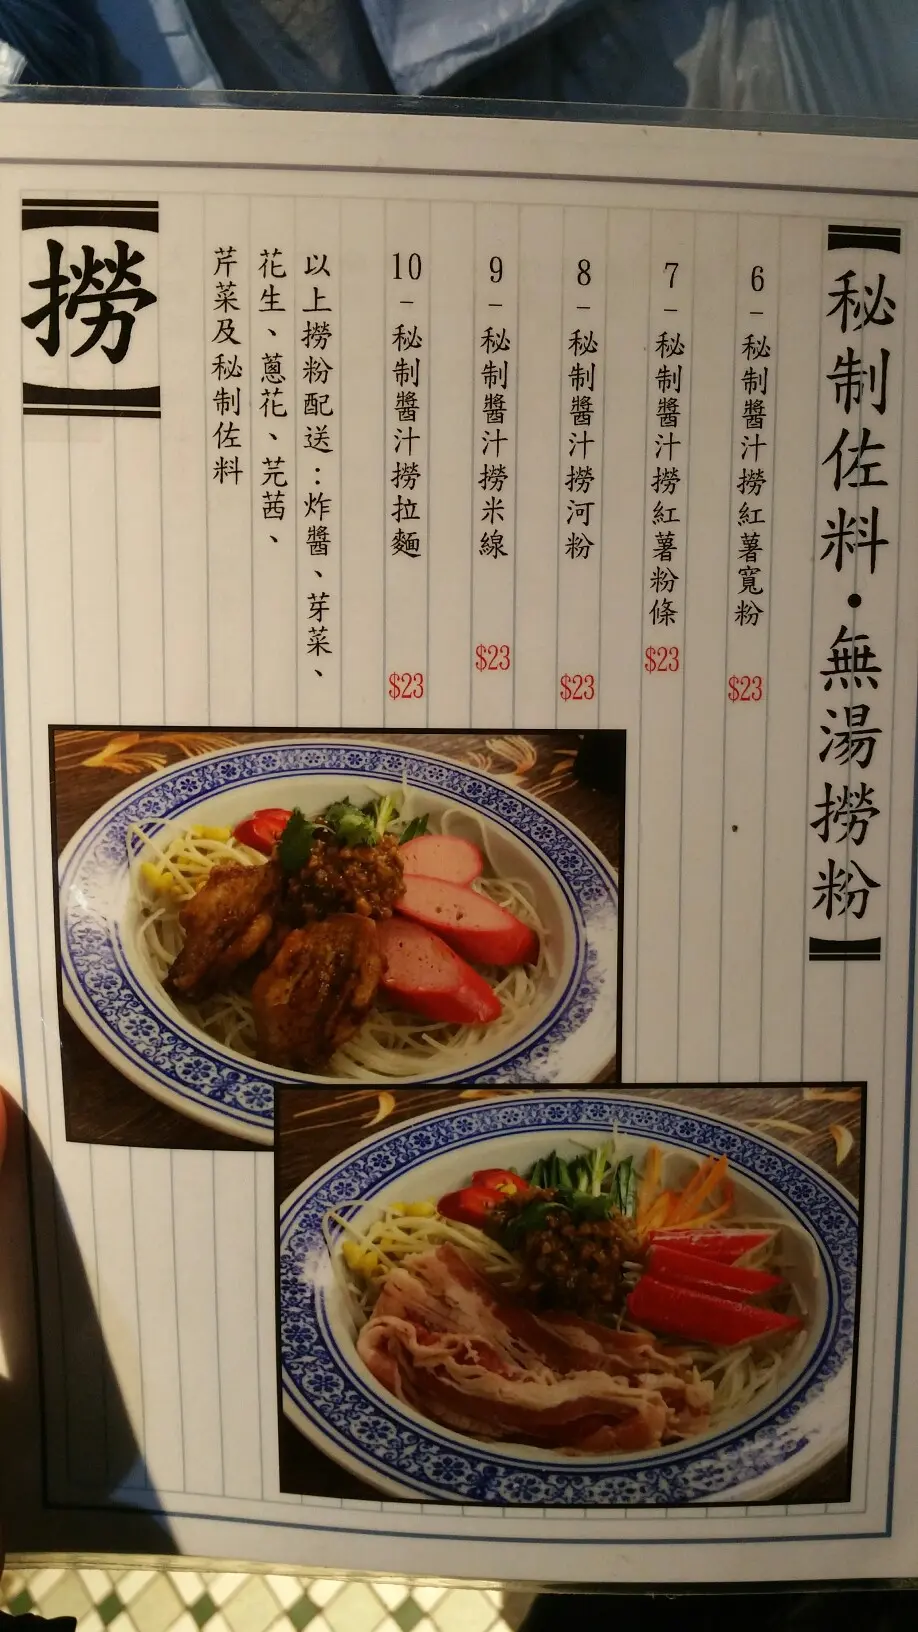 秘制佐料・無湯撈粉
6-秘制醬汁撈紅薯寬粉 $23
7-秘制醬汁撈紅薯粉條 $23
8-秘制醬汁撈河粉 $23
9-秘制醬汁撈米線 $23
10-秘制醬汁撈拉麵 $23
以上撈粉配送：炸醬、芽菜、
花生、蔥花、芫茜、
芹菜及秘制佐料
撈